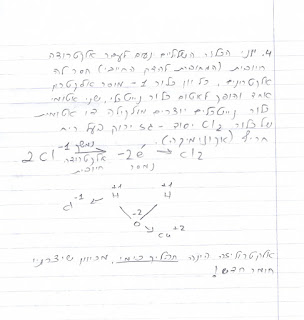 4. יוני הכלור השליליים נעים לעבר אלקטרודה
חיובית (המחוברת להדק החיובי) חסר לה
אלקטרונים. כל יון כלור 1- מוסר אלקטרון
אחד והופך לאטום כלור נייטרלי, שני אטומי
כלור נייטרלים יוצרים מולקולה דו אטומית
של כלור. Cl2 יסוד - גז ירוק בעל ריח
חריף (אקונומיקה).
2Cl⁻¹ נמשך אלקטרודה חיובית → -2e נמסר → Cl2
+1 +1
Cl⁻¹ H H
O⁻²
Cu⁺²
אלקטרוליזה הינה תהליך כימי, מכיוון שיצרנו
חומר חדש!